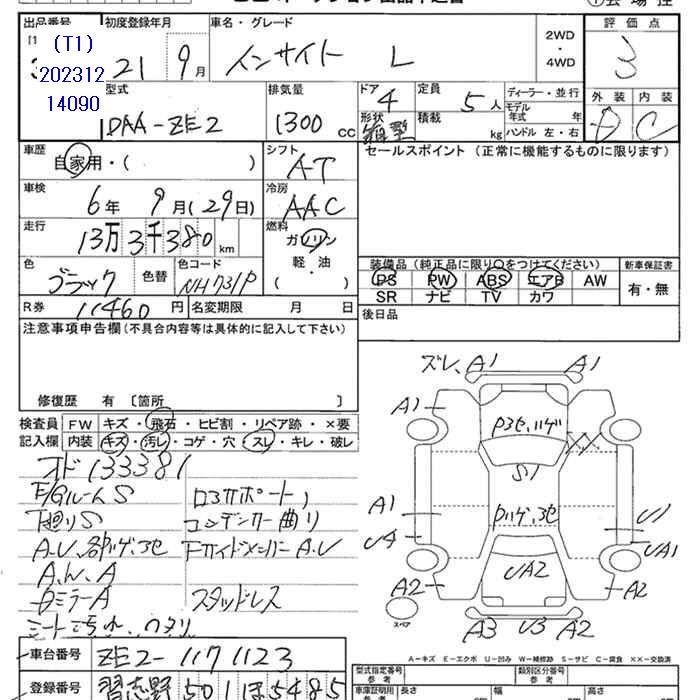 出品番号
(T1)
202312
14090
初度登録年月
21 9月
車名・グレード
インサイト L
2WD
・
4WD
評価点
3
型式
DAA-ZE2
排気量
1300 CC
ドア
4
形状
定員
5人
積載
kg
ディーラー・並行
モデル年式 年
ハンドル 左・右
外装 内装
D C
車歴
自家用・( )
シフト
AT
セールスポイント (正常に機能するものに限ります)
車検
6年 9月(29日)
冷房
AAC
走行
13万3千380km
燃料
ガソリン
軽・油
( )
色
ブラック
色替
色コード
NH731P
装備品 (純正品に限り○をつけてください)
新車保証書
PS PW ABS エアB AW
SR ナビ TV カワ
有・無
R券 11460円
名変期限 月 日
後日品
注意事項申告欄(不具合内容等は具体的に記入して下さい)
修復歴 有 〔箇所 〕
検査員記入欄
FW キズ・飛石・ヒビ割・リペア跡・×要
内装 キズ・汚レ・コゲ・穴・スレ・キレ・破レ
オド133381
F/GルームS ロアサポート
下廻りS コンデンサー曲り
A.U、各部ハゲ、ヨセ FサイドメンバーA.U
A.W.A
ミラーA スタッドレス
シート
ズレ、A1 A1
A1
ハゲ
S1
A1
U4
ハゲ、ヨセ
U1
UA1
UA2
A2 A2
スペア
A3 U3 A2
A-キズ E-エクボ U-凹み W-補修跡 S-サビ C-腐食 XX-交換済
車台番号 ZE2-1171123
登録番号 習志野501ほ5485
型式指定番号
参考
類別区分番号
参考
車庫証明用
参考
長さ 幅 高さ